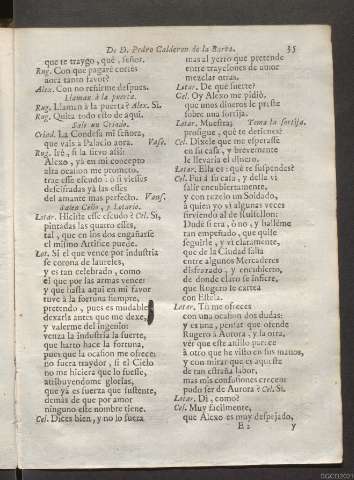 De D. Pedro Calderon de la Barca. 35
que te traygo, què, señor.
Rug. Con que pagarè cortès
aora tanto favor?
Alex. Con no reñirme despues.
Llaman à la puerta.
Rug. Llaman à la puerta? Alex. Si.
Rug. Quita todo esto de aqui.
Sale un Criado.
Criad. La Condesa mi señora,
que vais à Palacio aora. Vase.
Rug. Irè, si la sirvo assi:
Alexo, yà en mi concepto
alta ocasion me prometo,
trae esse escudo: ò si viesses
descifradas yà las eses
del amante mas perfecto. Vanse.
Salen Celio, y Lotario.
Lotar. Hiciste esse escudo? Cel. Si,
pintadas las quatro esses,
tal, que en los dos engañarse
el mismo Artifice puede.
Lot. Si el que vence por industria
se corona de laureles,
y es tan celebrado, como
el que por las armas vence:
y que hasta aqui en mi favor
tuve à la fortuna siempre,
pretendo, pues es mudable,
dexarla antes que me dexe,
y valerme del ingenio:
venza la industria la suerte,
que harto hace la fortuna,
pues que la ocasion me ofrece:
no fuera traydor, si el Cielo
no me hiciera que lo fuesse,
atribuyendome glorias,
que yà es fuerza que sustente,
demàs de que por amor
ninguno esse nombre tiene.
Cel. Dices bien, y no lo fuera
mas al yerro que pretende
entre trayciones de amor
mezclar otras.
Lotar. De que suerte?
Cel. Oy Alexo me pidiò,
que unos dineros le preste
sobre una sortija.
Lotar. Muestra; Toma la sortija.
prosigue, què te detienes?
Cel. Dixele que me esperasse
en su casa, y brevemente
le llevaria el dinero.
Lotar. Ella es: què te suspendes?
Cel. Fui à su casa, y della vi
salir encubiertamente,
y con rezelo un Soldado,
à quien yo vi algunas veces
sirviendo al de Ruisellon:
Dudè si era, ò no, y hallème
tan empeñado, que quise
seguirle, y vi claramente,
que de la Ciudad salta
entre algunos Mercaderes
disfrazado, y encubierto,
de donde claro se infiere,
que Rugero se cartea
con Estela.
Lotar. Tù me ofreces
con una ocasion dos dudas:
y es una, pensar que ofende
Rugero à Aurora, y la otra,
vèr que este anillo parece
à otro que he visto en sus manos,
y con mirar que es aqueste
de tan estraña labor,
mas mis confusiones crecen:
pudo ser de Aurora? Cel. Si.
Lotar. Di, como?
Cel. Muy facilmente,
que Alexo es muy despejado,
E 2 y